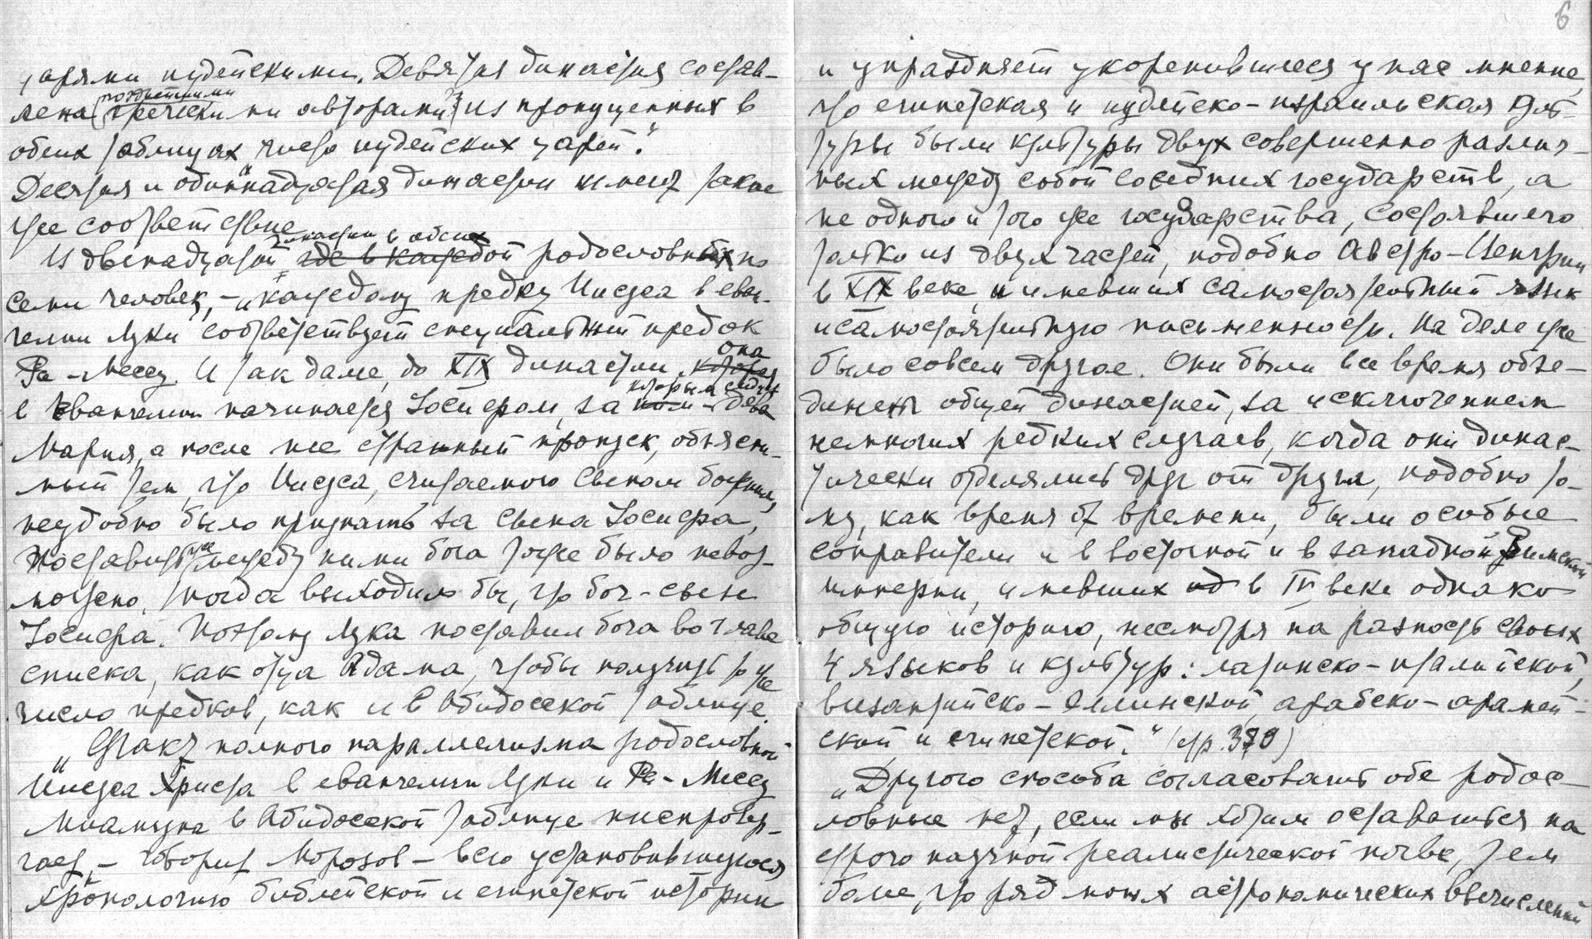 царями иудейскими. Девятая династия состав-
лена (позднейшими греческими авторами?) из пропущенных в
обеих таблицах числа иудейских царей".
Десятая и одиннадцатая династии имеют такие
же соответствие
Из двенадцатой династии в обеих где в каждой родословных по
семи человек, – "каждому предку Иисуса в еван-
гелии Луки соответствует специальный предок
Ра-Мессу. И так далее, до XIX династии, которая она
в евангелии начинается Иосифом, за ком которым следует дева
Мария, а после нее странный пропуск, объясни-
мый тем, что Иисуса, считаемого сыном божиим,
неудобно было признать за сына Иосифа,
поставить же между ними бога тоже было невоз-
можно, тогда выходило бы, что бог-сын
Иосифа. Поэтому Лука поставил бога во главе
списка, как отца Адама, чтобы получить то же
число предков, как и в Абидосской таблице.
"Факт полного параллелизма родословной
Иисуса Христа в евангелии Луки и Ра-Мессу
Миамуна в Абидосской таблице ниспровер-
гает, – говорит Морозов – всю установившуюся
хронологию библейской и египетской истории
6
и упраздняет укоренившееся у нас мнение,
что египетская и иудейско-израильская куль-
туры были культуры двух совершенно различ-
ных между собой соседних государств, а
не одного и того же государства, состоявшего
только из двух частей, подобно Австро-Венгрии
в XIX веке, и имевших самостоятельный язык
и самостоятельную письменность. На деле же
было совсем другое. Они были все время объе-
динены общей династией, за исключением
немногих редких случаев, когда они динас-
тически отделялись друг от друга, подобно то-
му, как время от времени, были особые
соправители и в восточной и в западной Римской
империи, имевших в IV веке однако
общую историю, несмотря на разность своих
4 языков и культур: латинско-италийской,
византийско-эллинской, арабско-арамей-
ской и египетской." (стр. 370)
"Другого способа согласовать обе родос-
ловные нет, если мы хотим оставаться на
строго научной реалистической почве, тем
более, что ряд моих астрономических вычислений